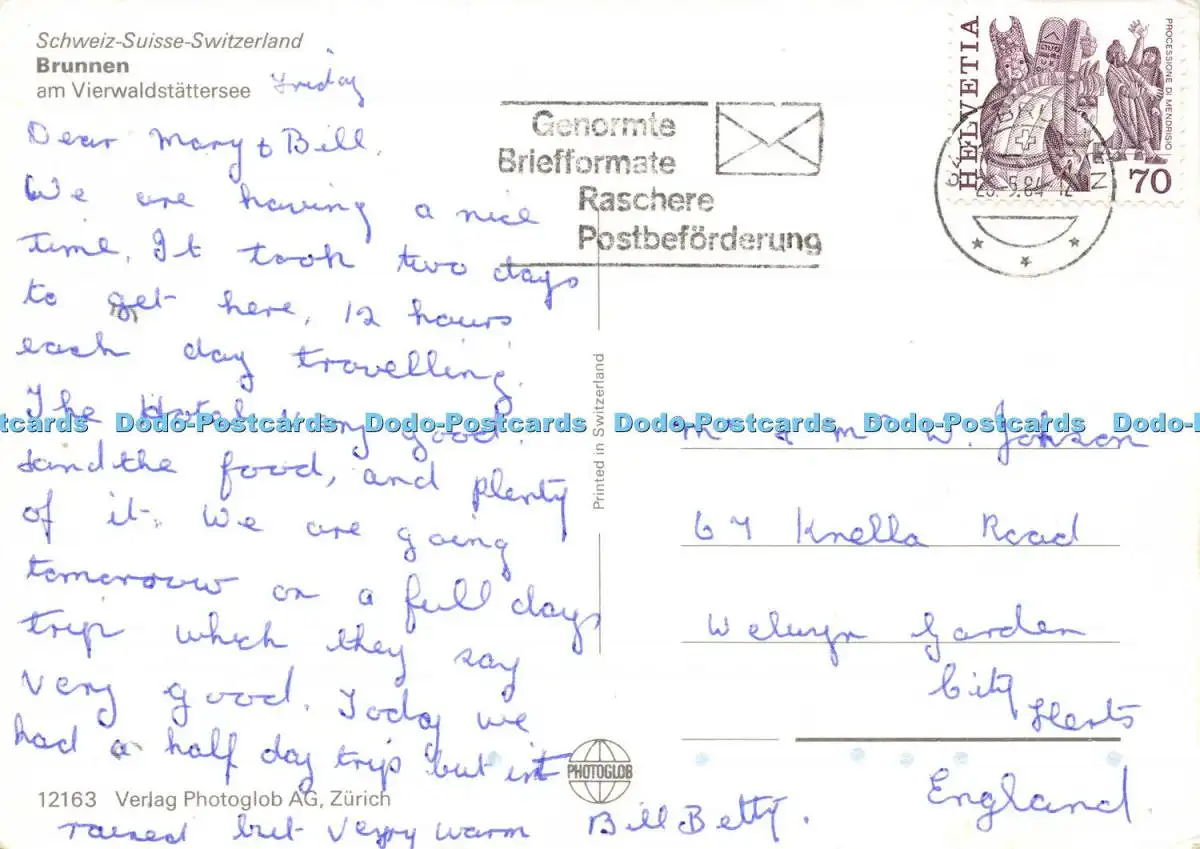 Schweiz-Suisse-Switzerland
Brunnen
am Vierwaldstättersee
Friday
Dear Mary & Bill.
We are having a nice
time. It took two days
to get here, 12 hours
each day travelling.
The Hotel very good.
and the food, and plenty
of it. We are going
tomorouw on a full days
trip which they say
very good. Today we
had a half day trip but it
rained but very warm Bill Betty.
12163 Verlag Photoglob AG, Zürich
PHOTOGLOB
Printed in Switzerland
Genormte
Briefformate
Raschere
Postbeförderung
HELVETIA
PROCESSIONE DI MENDRISIO
70
W. Johson
67 Knella Road
Welwyn Garden
City
Herts
England.
Dodo-Postcards Dodo-Postcards Dodo-Postcards Dodo-Postcards